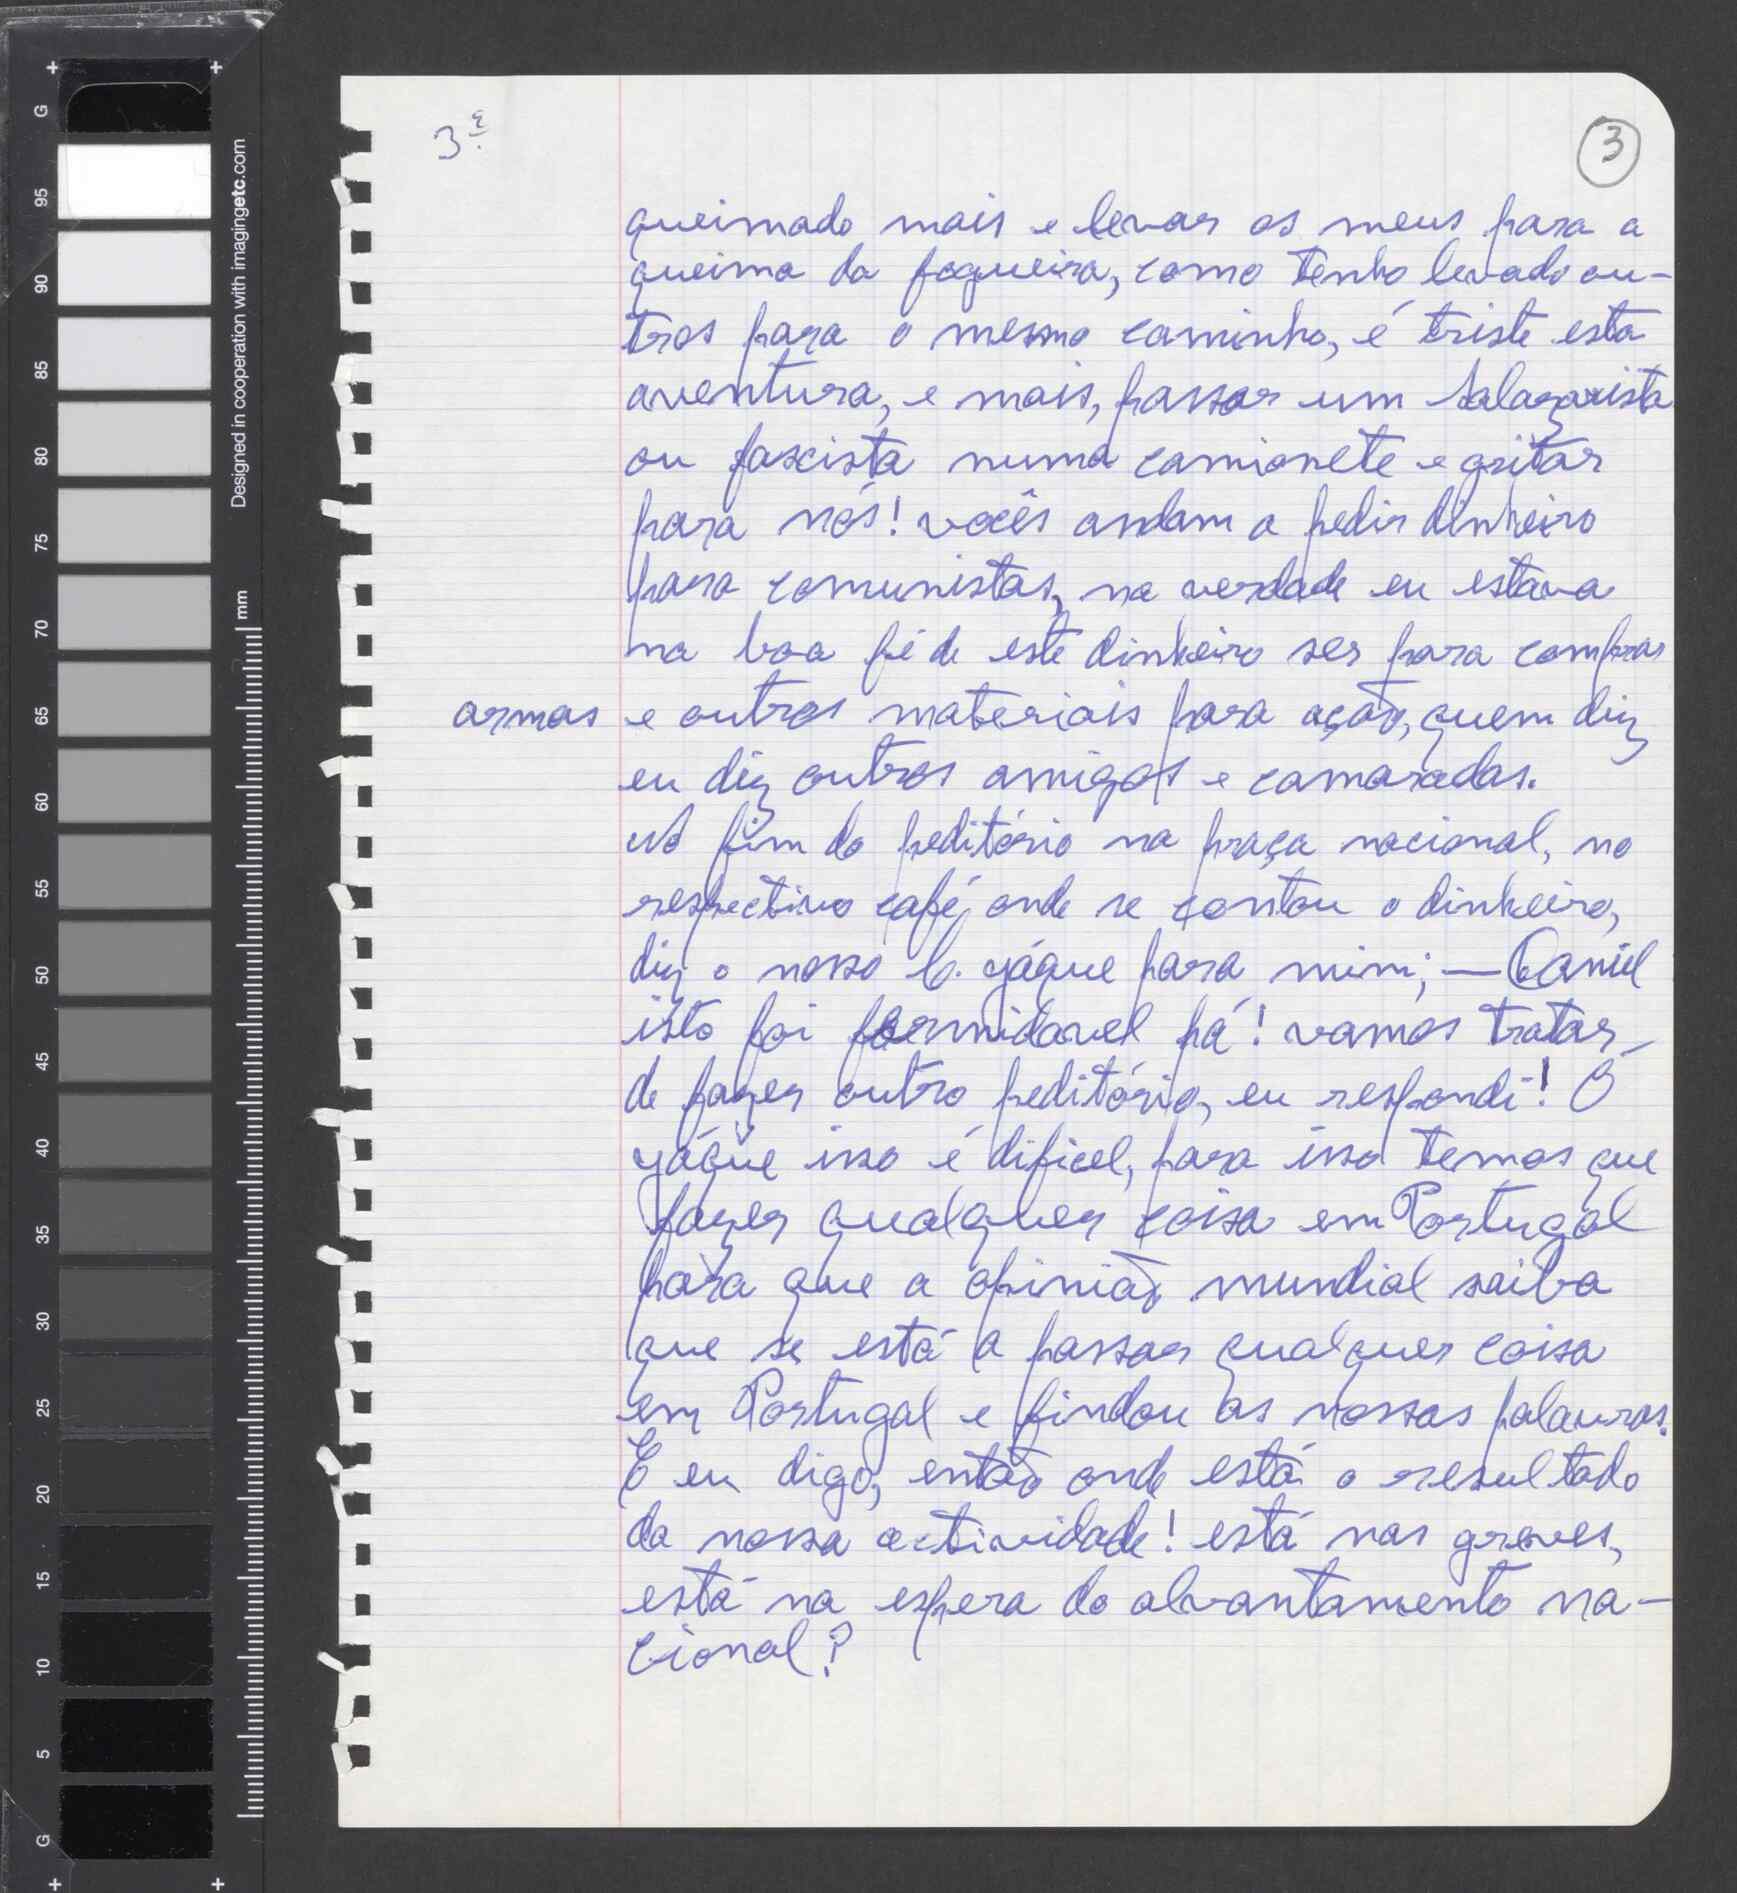 3ª
3
queimado mais e levar os meus para a
queima da fogueira, como tenho levado ou-
tros para o mesmo caminho, é triste esta
aventura, e mais, passar um salazarista
ou fascista numa camionete e gritar
para nós! vocês andam a pedir dinheiro
para comunistas, na verdade eu estava
na boa fé de este dinheiro ser para comprar
armas e outros materiais para ação, quem diz
eu diz outros amigos e camaradas.
No fim do peditório na praça nacional, no
respectivo café, onde se contou o dinheiro,
diz o nosso C. yáque para mim; — Daniel
isto foi formidavel pá! vamos tratar
de fazer outro peditório, eu respondi! Ó
yáque isso é dificel, para isso temos que
fazer qualquer coisa em Portugal
para que a opinião mundial saiba
que se está a passar qualquer coisa
em Portugal e findou as nossas palavras.
E eu digo, então onde está o resultado
da nossa actividade! está nas greves,
está na espera do alvantamento na-
cional?
G
95
90
85
80
75
70
65
60
55
50
45
40
35
30
25
20
15
10
5
G
Designed in cooperation with imagingetc.com
mm